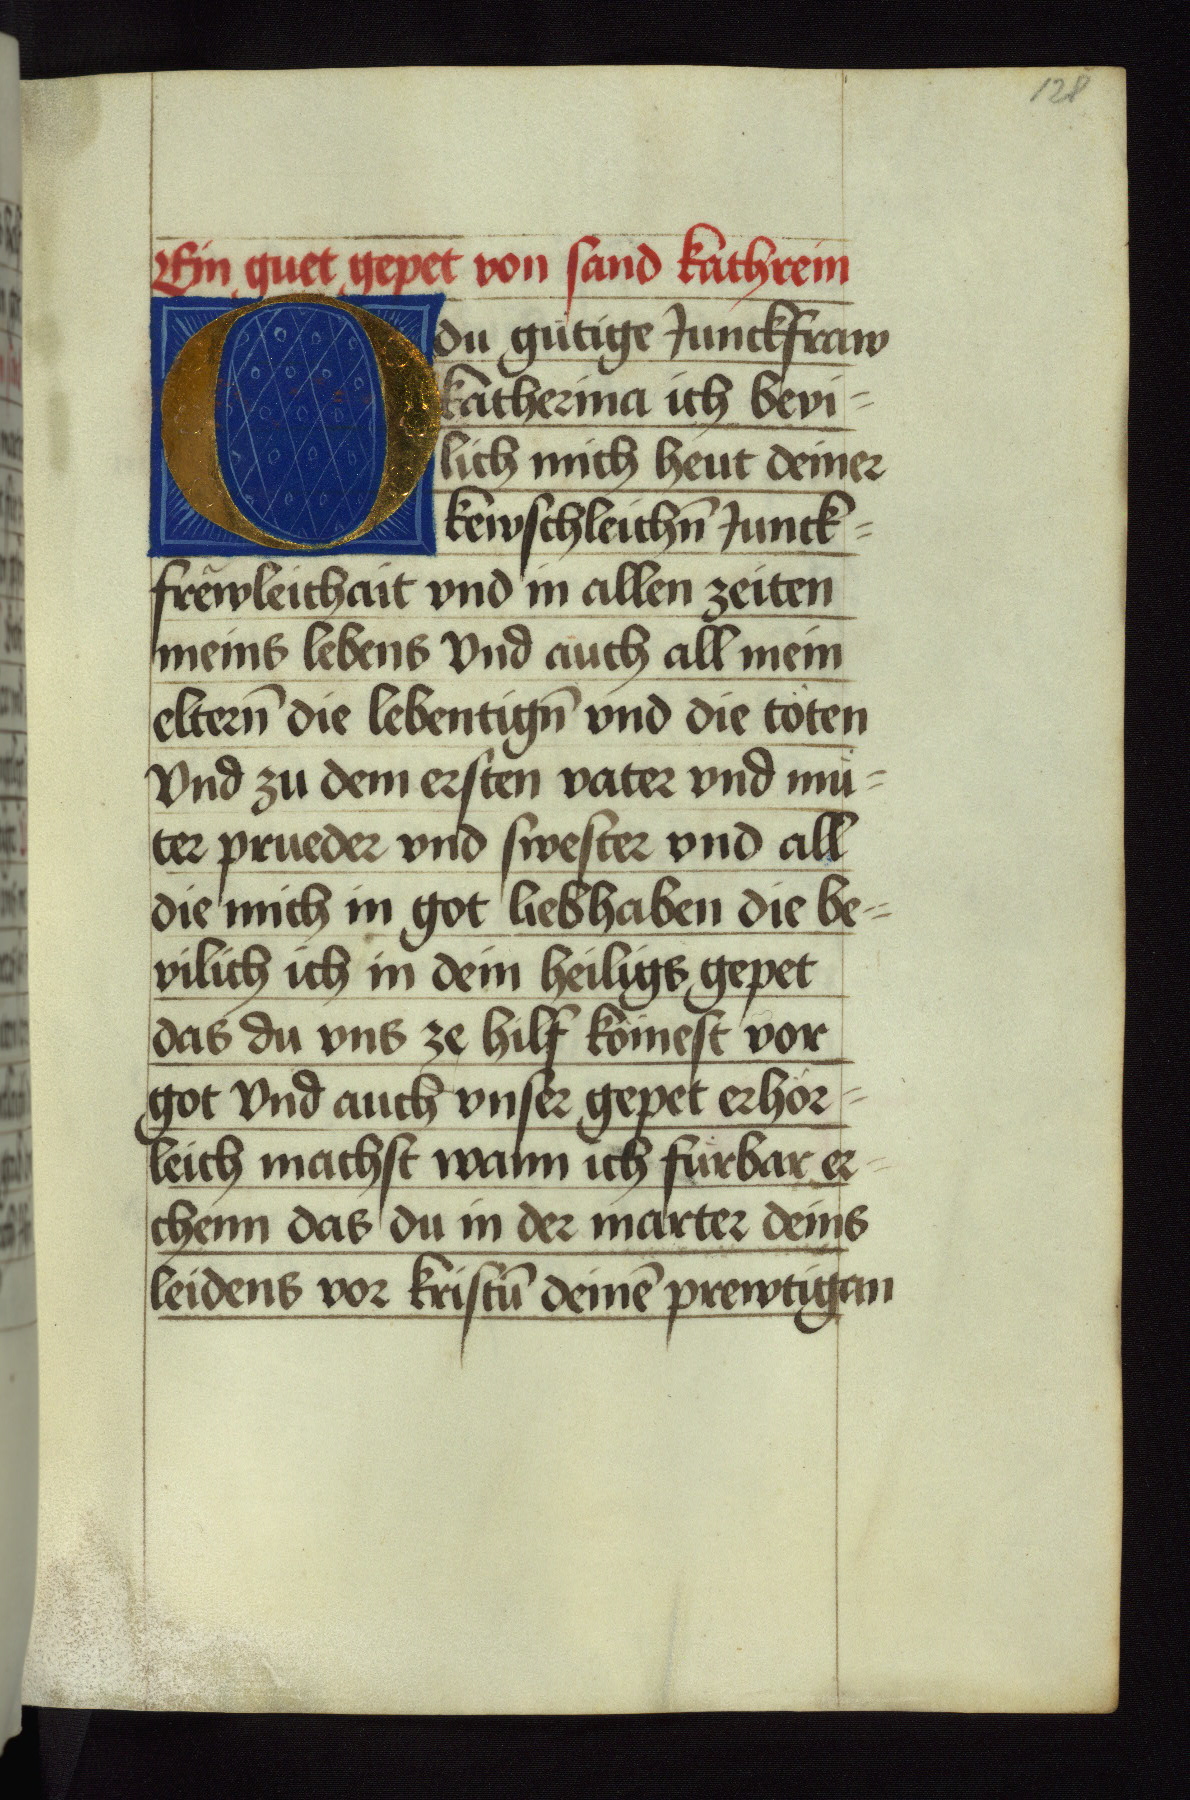 128
Ein guet gepet von sand kathrein
O du gütige Junckfraw
katherina ich bevi=
lich mich heut deiner
kewschleichn̄ Junck=
frewleichait vnd in allen zeiten
meins lebens Vnd auch all mein
eltern̄ die lebentign̄ vnd die töten
Vnd zu dem ersten vater vnd mü=
ter prueder vnd swester vnd all
die mich in got liebhaben die be=
vilich ich in dein heiligs gepet
das du vns ze hilf kömest vor
got Vnd auch vnser gepet erhör=
leich machst wann ich fürbar er=
chenn das du in der marter deins
leidens vor kristū deinē prewtigan